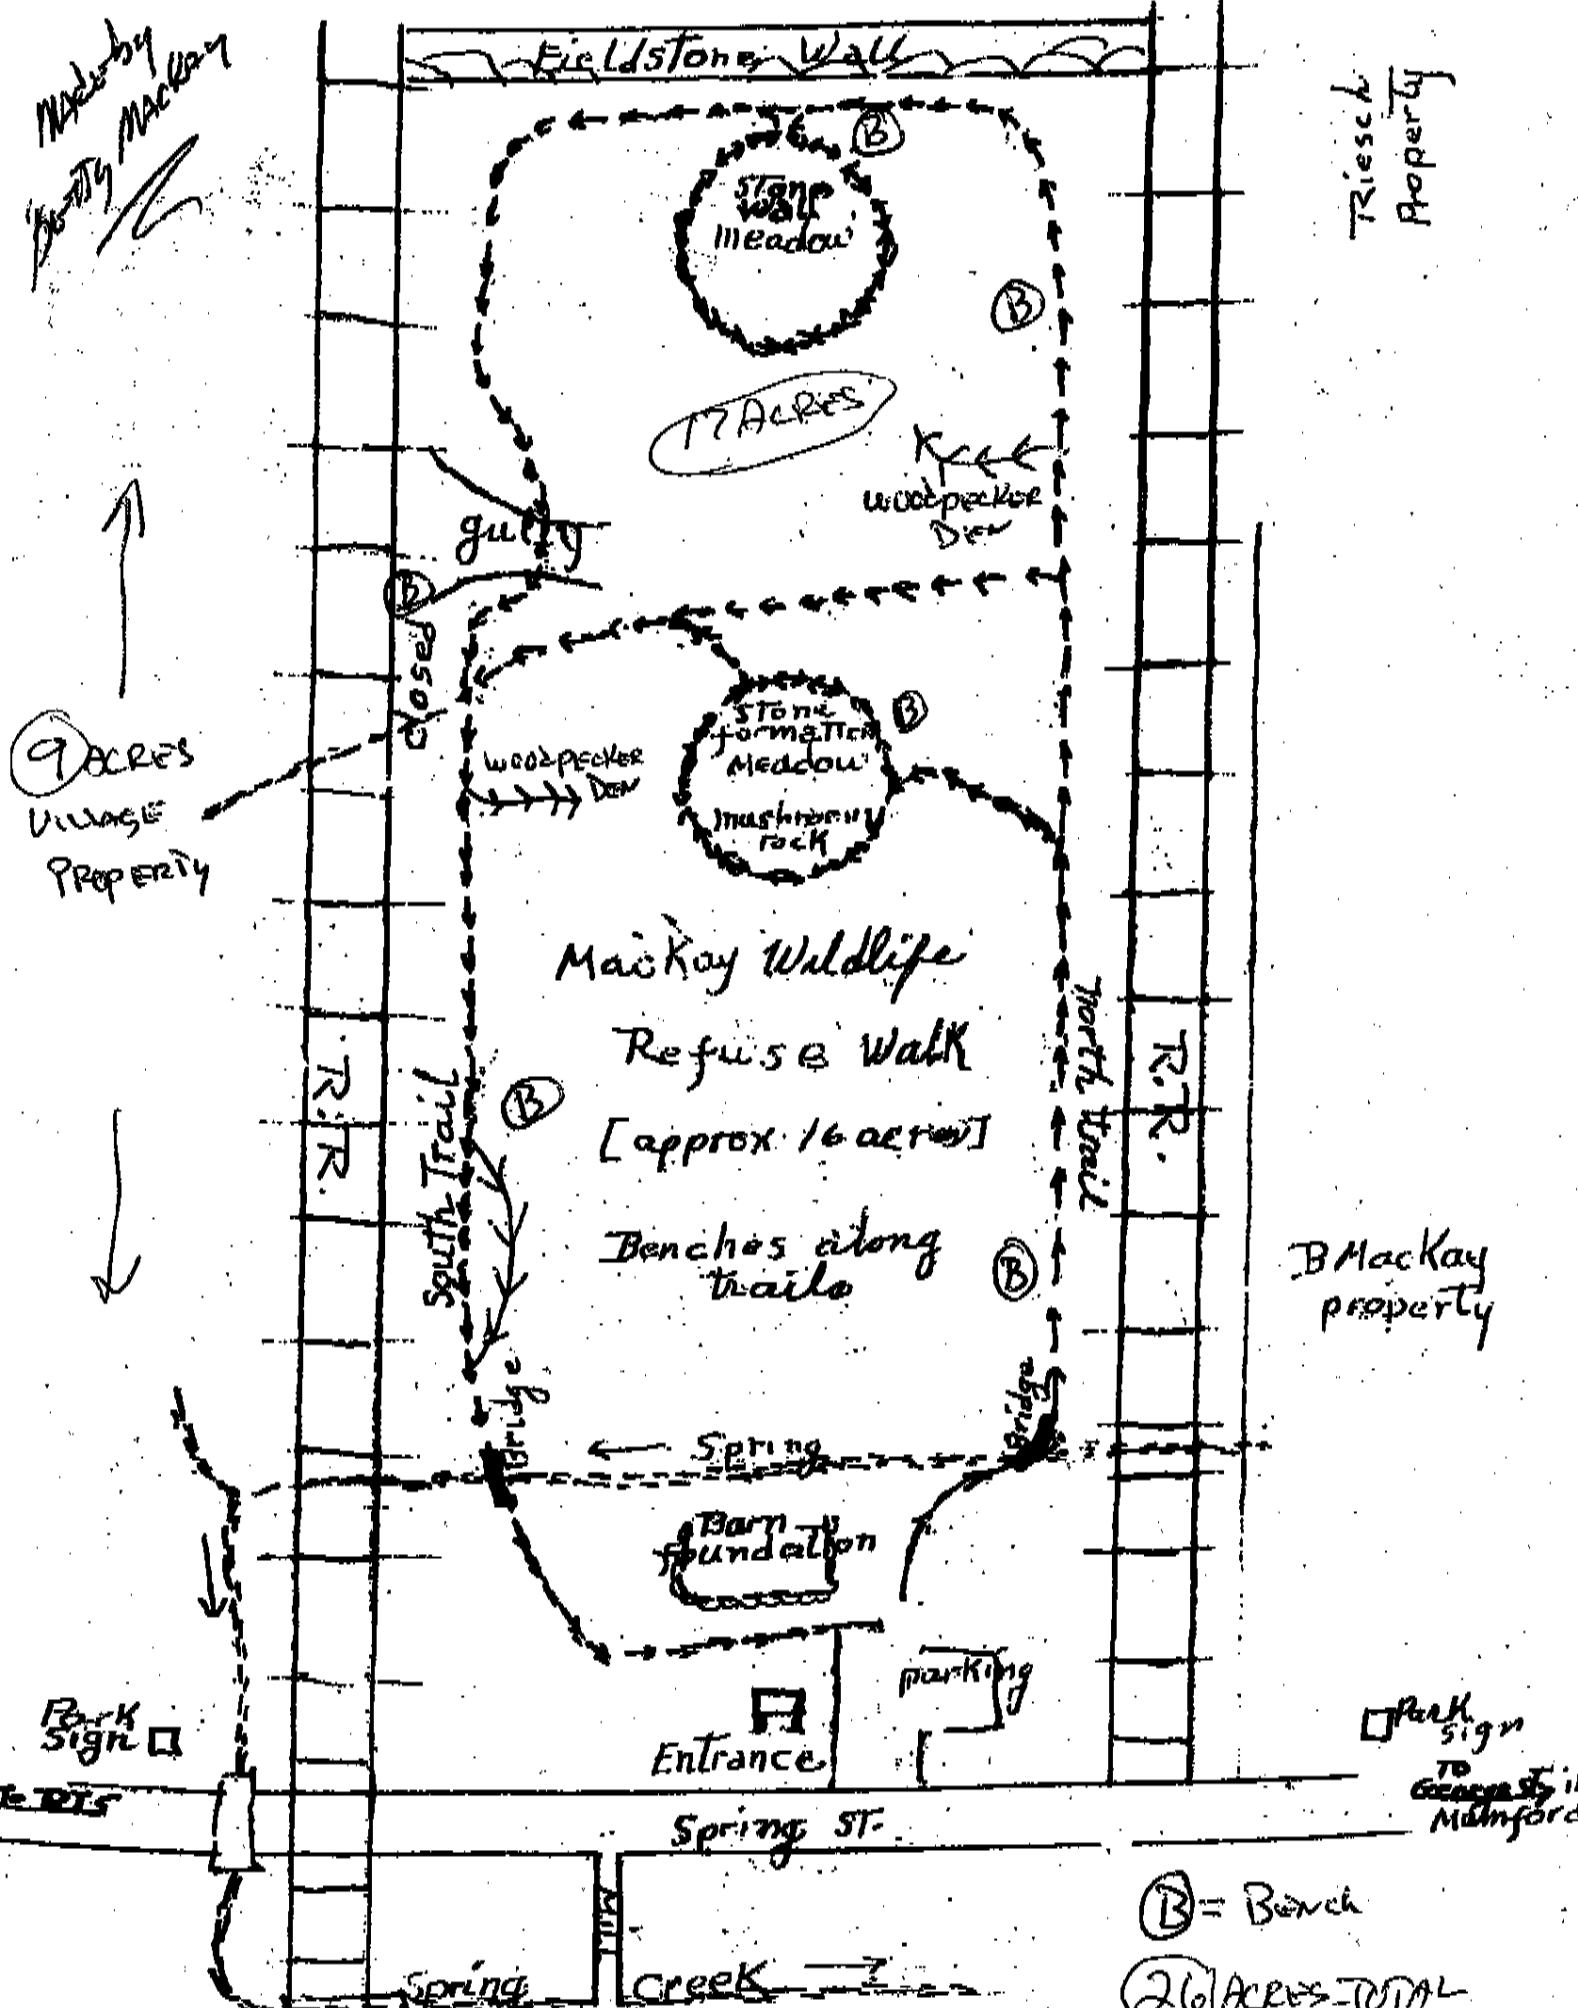 Made by
"Dotty" MacKay
Fieldstone Wall
Riesch
Property
B
Stone
Wall
Meadow
B
17 Acres
Woodpecker
Den
gully
B
Closed
9 Acres
Village
Property
Woodpecker
Den
Stone
formation
Meadow
mushroom
rock
B
MacKay Wildlife
Refuse Walk
[approx. 16 acres]
Benches along
trails
South Trail
North trail
R.R.
R.R.
B
B
B MacKay
property
Bridge
Bridge
Spring
Barn
foundation
parking
Entrance
Park
Sign
Park
sign
To
Mumford
Spring ST.
Mill
Spring Creek
B = Bench
26 Acres-Total